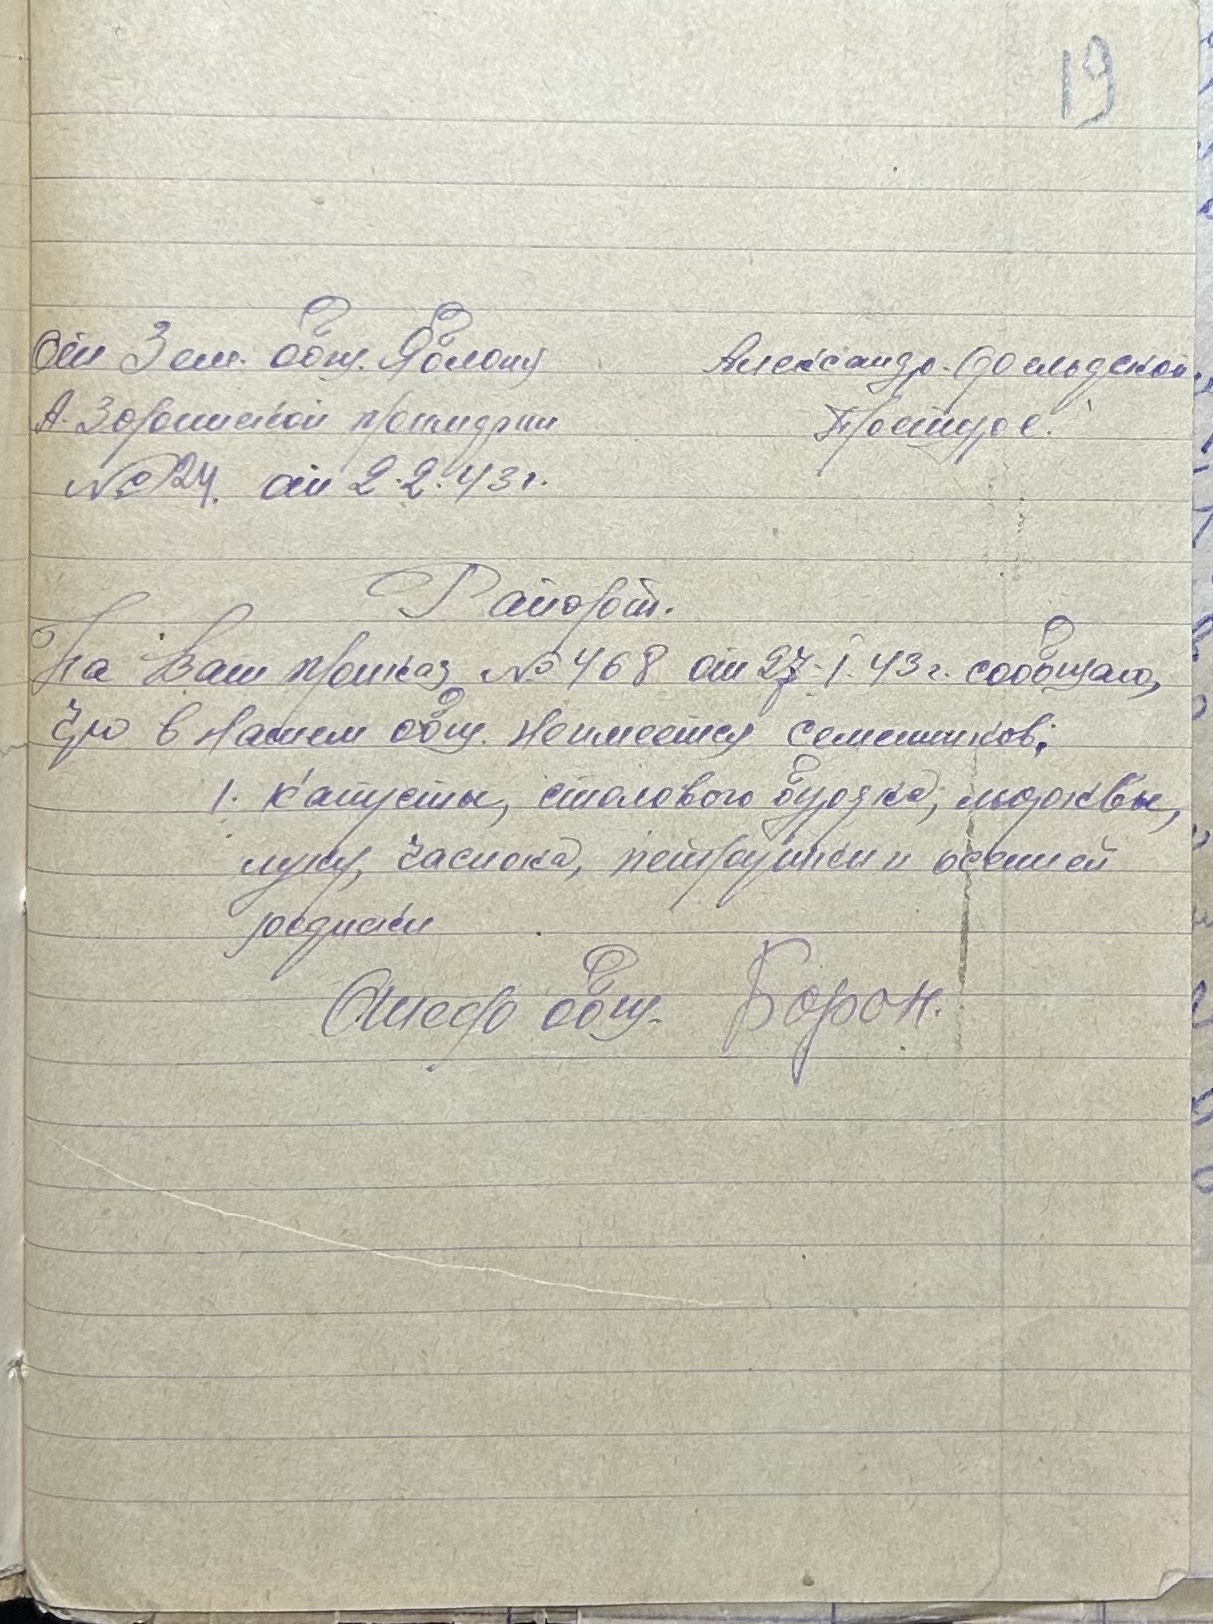 19
От Зем. общ. Яблоня
А. Зоринской примэрии
№ 24. от 2.2.43г.
Александр.
Претуре.
Рапорт.
На Ваш приказ № 468 от 27.I.43г. сообщаю,
что в нашем общ. неимеется семенников:
1. капусты, столового буряка, морквы,
луку, часнока, петрушки и осенней
редиски
Шеф общ. Борон.